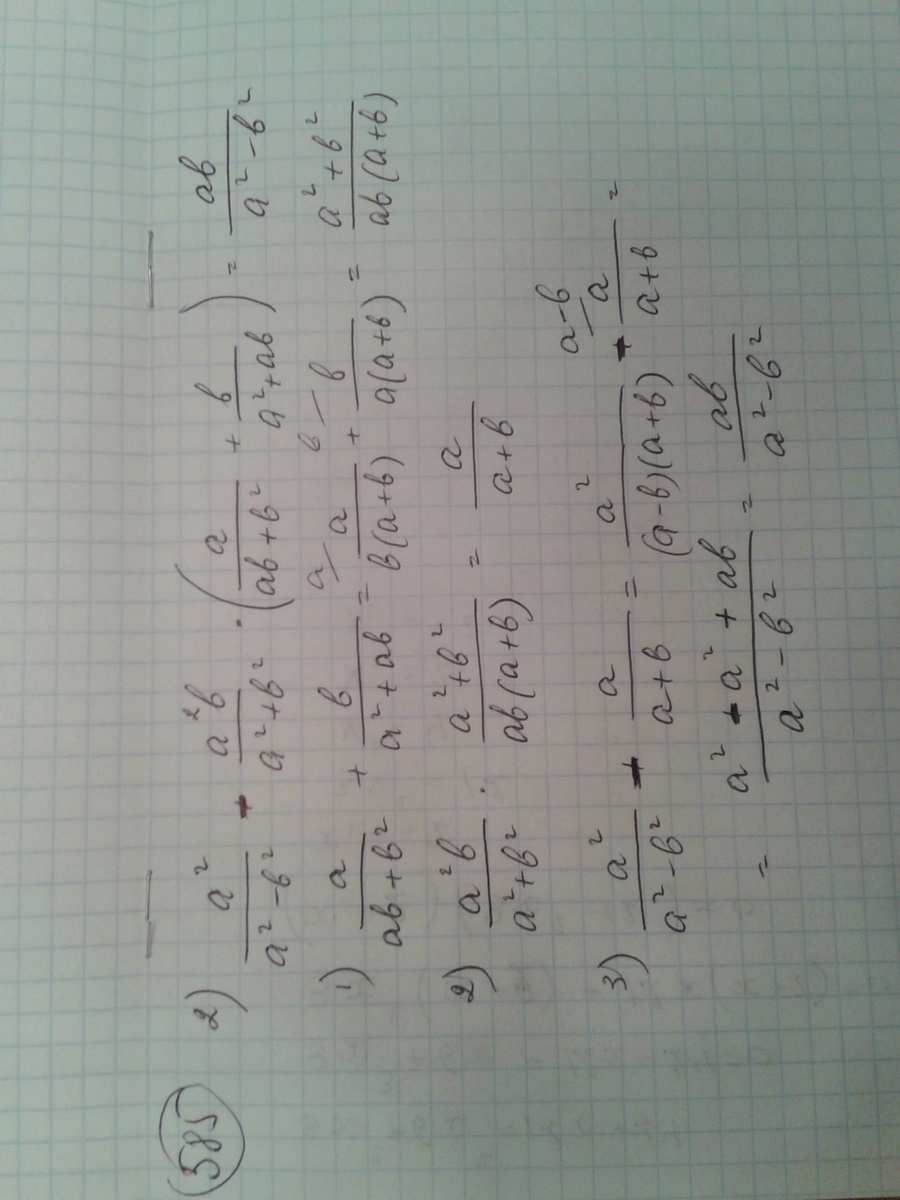 585
2) a²/(a²-b²) + a²b/(a²+b²) · (a/(ab+b²) + b/(a²+ab)) = ab/(a²-b²)
1) a/(ab+b²) + b/(a²+ab) = a/ a/(b(a+b)) + b/ b/(a(a+b)) = (a²+b²)/(ab(a+b))
2) a²b/(a²+b²) · (a²+b²)/(ab(a+b)) = a/(a+b)
3) a²/(a²-b²) + a/(a+b) = a²/((a-b)(a+b)) + a-b/ a/(a+b) =
= (a² + a² + ab)/(a²-b²) = ab/(a²-b²)